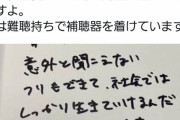 すよ。
は難聴持ちで補聴器を着けています
意外と聞こえない
フリもできて、社会では
しっかり生きていけまんだ